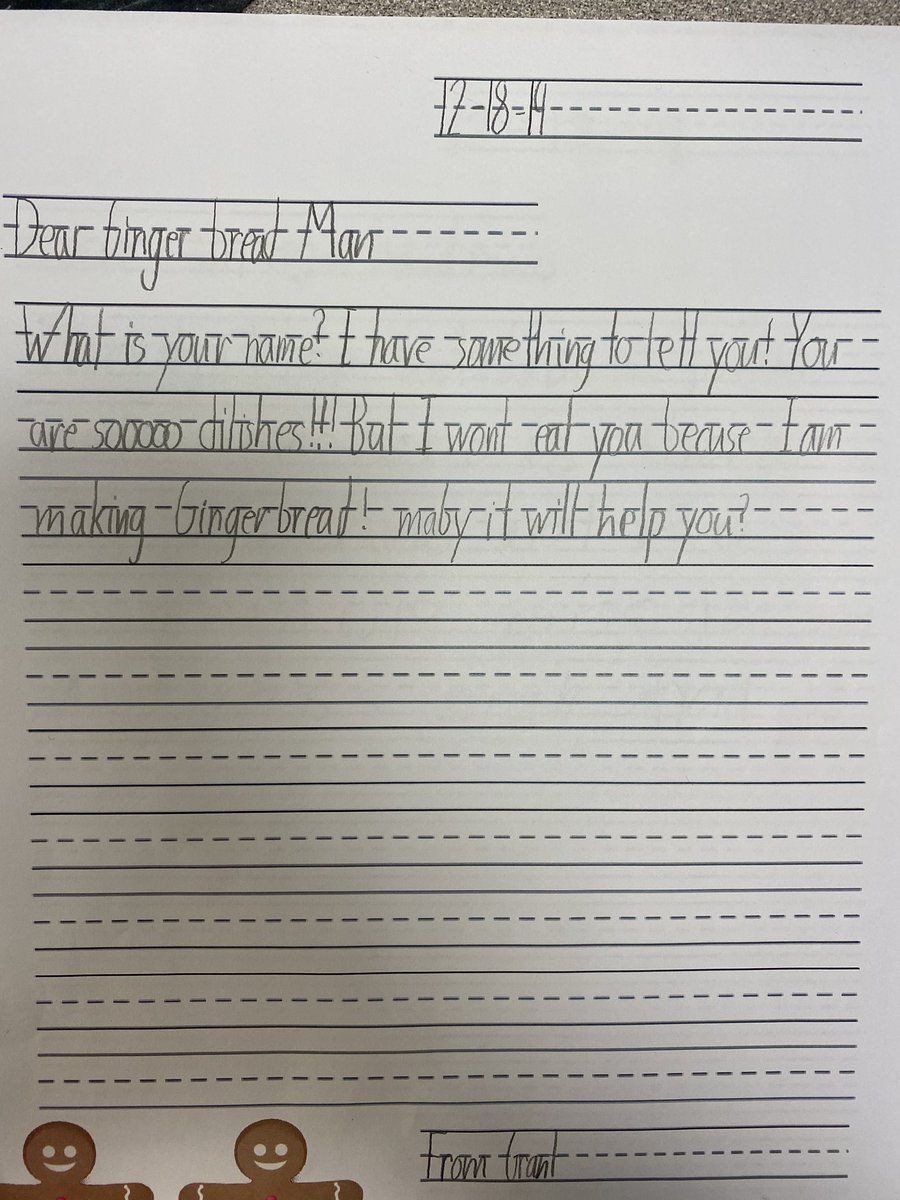 12-18-19
Dear Ginger bread Man
What is your name? I have something to tell you! You
are sooooo dilishes!!! But I wont eat you becuse I am
making Gingerbread! maby it will help you?
From Grant